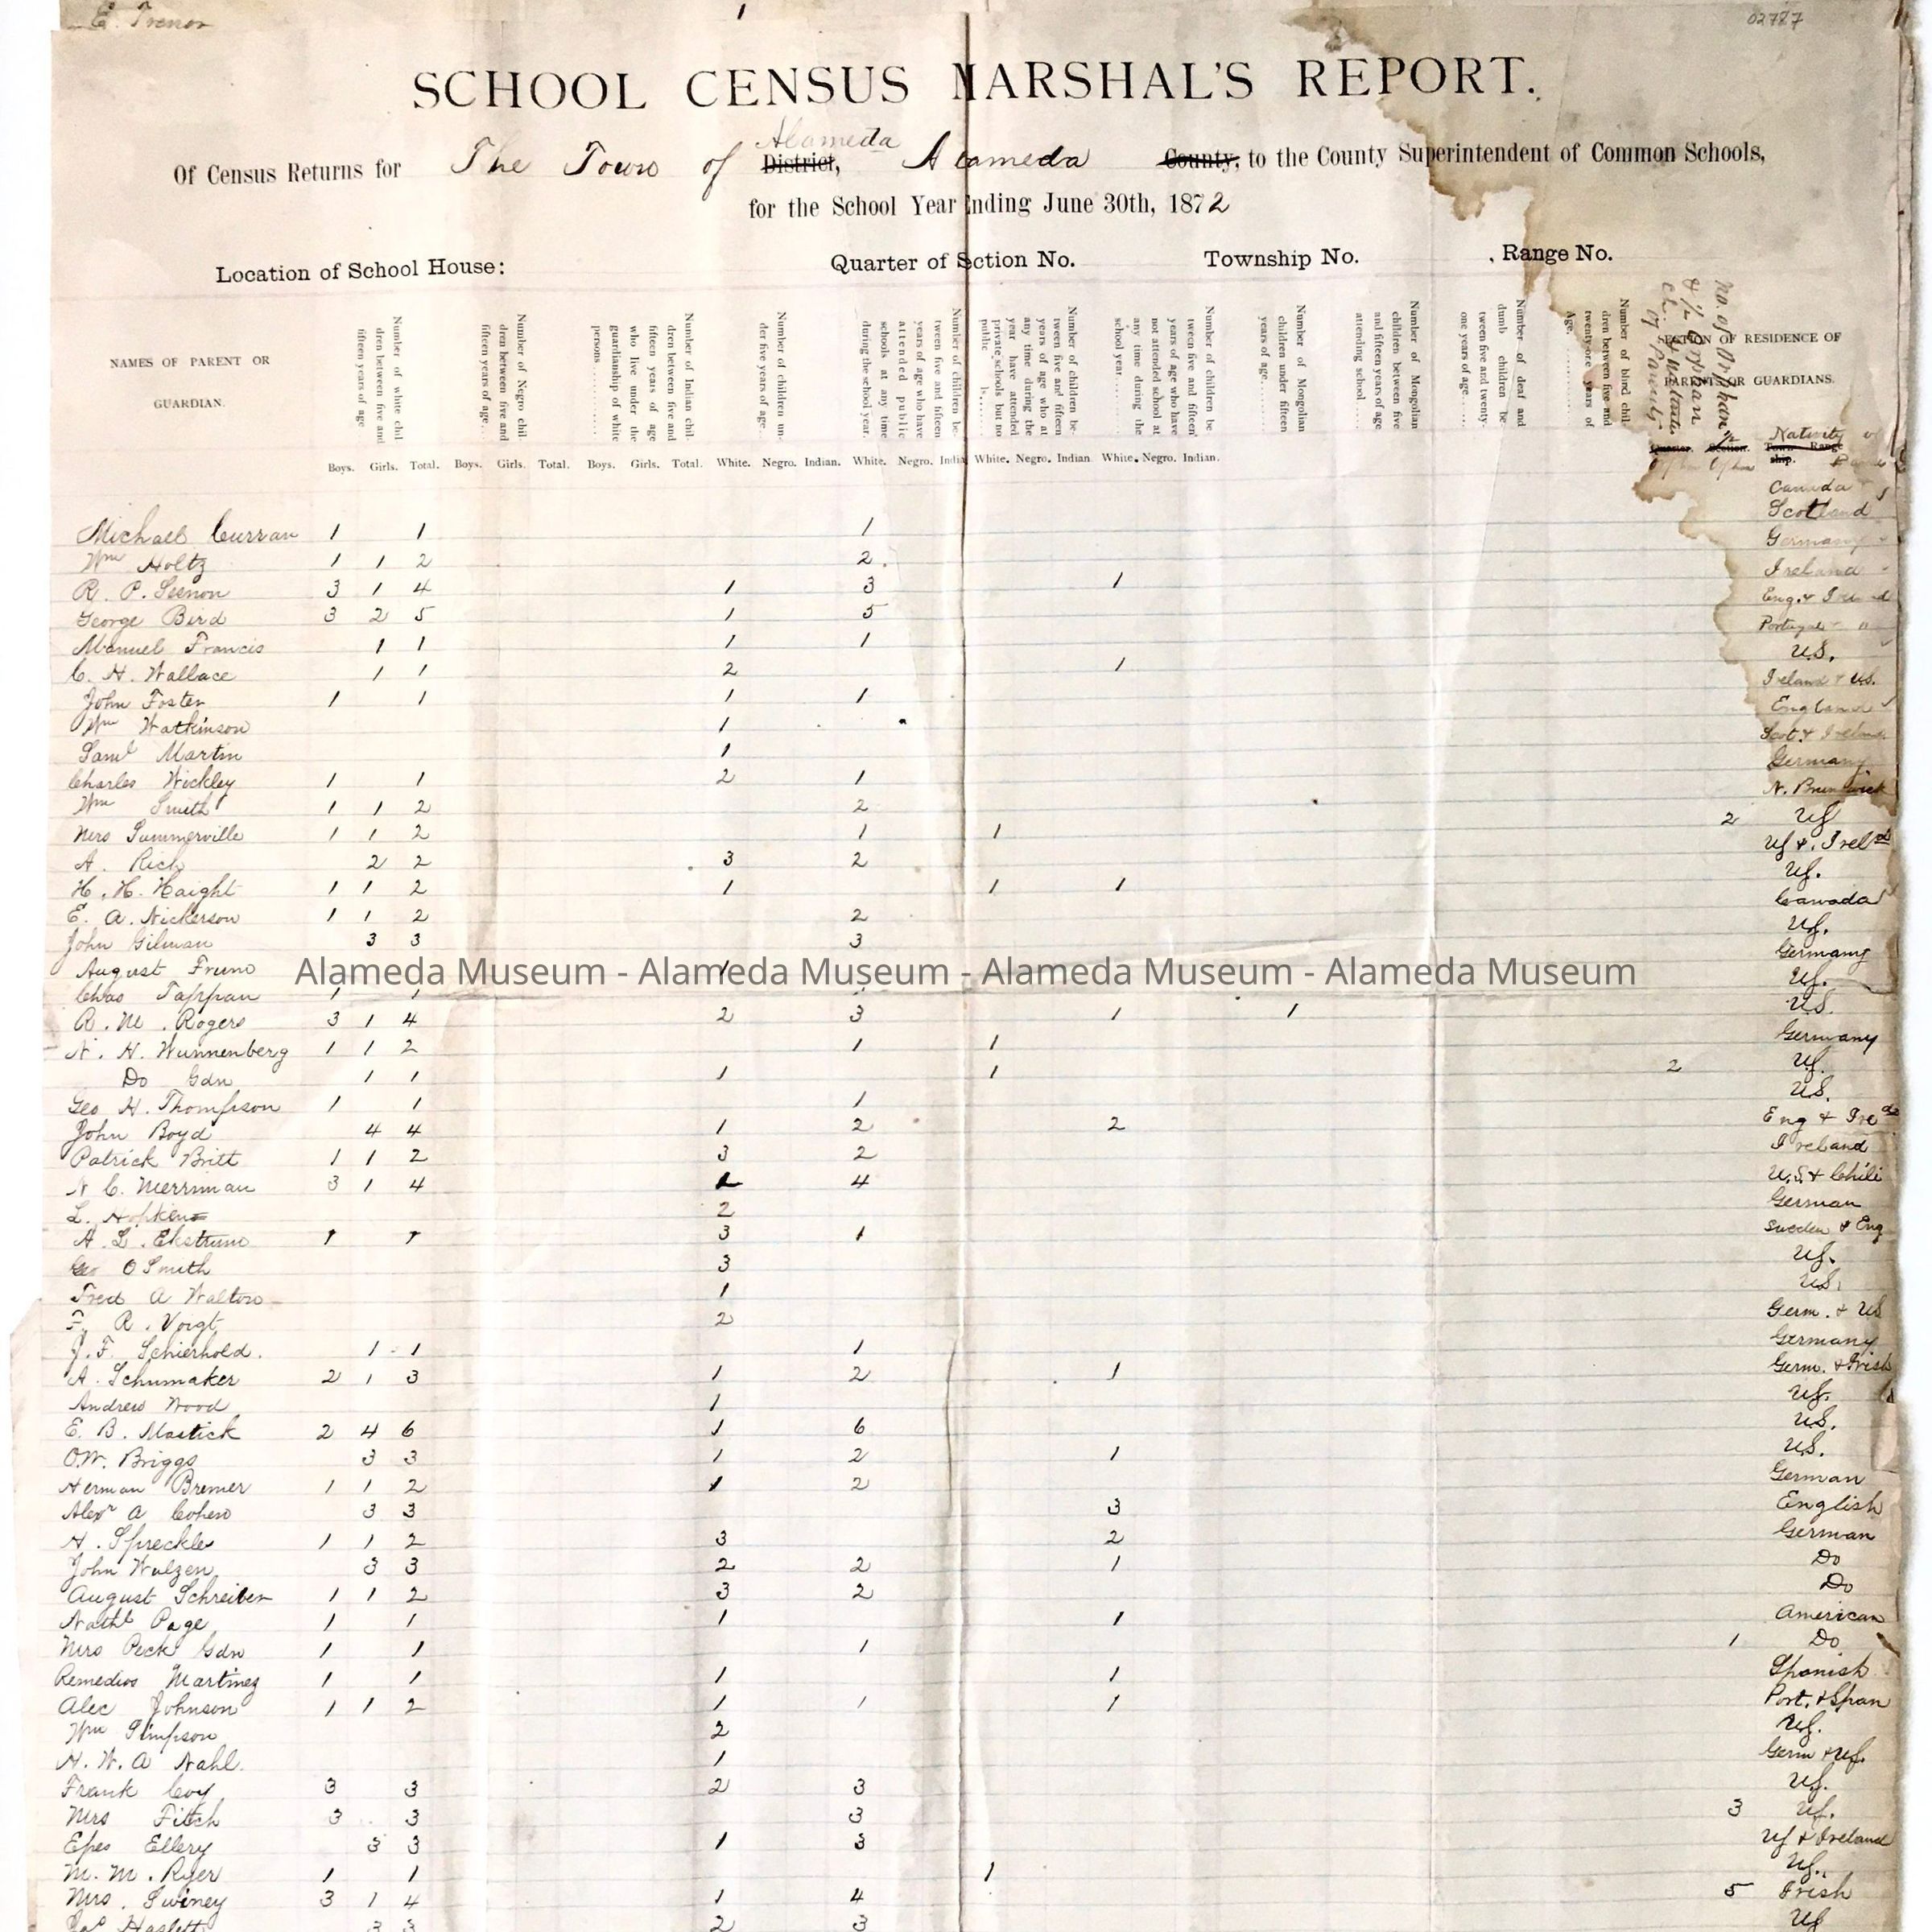 E. Trenor
1
02787
SCHOOL CENSUS MARSHAL'S REPORT.
Alameda
Of Census Returns for The Town of District, Alameda County, to the County Superintendent of Common Schools,
for the School Year Ending June 30th, 1872
Location of School House: Quarter of Section No. Township No. Range No.
NAMES OF PARENT OR GUARDIAN.
Number of white chil dren between five and fifteen years of age
Number of Negro chil dren between five and fifteen years of age...
Number of Indian chil- dren between five and fifteen years of age who live under the guardianship of white persons.....
Number of children un- der five years of age.
Number of children be- tween five and fifteen years of age who have attended public schools at any time during the school year.
Number of children be- tween five and fifteen years of age who at any time during the year have attended private schools but no public
Number of children be tween five and fifteen years of age who have not attended school at any time during the school year....
Number of Mongolian children under fifteen years of age....
Number of Mongolian children between five and fifteen years of age attending school....
Number of deaf and dumb children be tween five and twenty- one years of age....
Number of blind chil- dren between five and twenty-one years of Age.
No. of Orphan
& 1/2 Orphan
SECTION OF RESIDENCE OF PARENTS OR GUARDIANS.
Quarter. Section. Town ship. Range
Nativity of
Boys. Girls. Total. Boys. Girls. Total. Boys. Girls. Total. White. Negro. Indian. White. Negro. Indian White. Negro. Indian White. Negro. Indian.
Canada
Scotland
Michael Curran 1 1 1 Germany
Wm Holtz 1 1 2 2 Ireland
R. P. 3 1 4 1 3 1 Eng. &
George Bird 3 2 5 1 5 Portugal
Manuel Francis 1 1 1 1 U.S.
C. H. Wallace 1 1 2 1 Ireland & US.
John Foster 1 1 1 1 England
Wm Watkinson 1 Scot. & Ireland
Saml Martin 1 Germany
Charles Wickley 1 1 2 1 N. Brunswick
Wm Smith 1 1 2 2 2 US
Mrs Summerville 1 1 2 1 1 US & Ireld
A. Rich 2 2 3 2 US.
H. H. Haight 1 1 2 1 1 1 Canada
E. A. Nickerson 1 1 2 2 US.
John Gilman 3 3 3 Germany
August 1 US.
Alameda Museum - Alameda Museum - Alameda Museum - Alameda Museum
Chas Tappan 1 1 1 U.S.
R. M. Rogers 3 1 4 2 3 1 1 Germany
N. H. Wunnenberg 1 1 2 1 1 2 US.
Do Gdn 1 1 1 1 U.S.
Geo H. Thompson 1 1 1 Eng & Ire
John Boyd 4 4 1 2 2 Ireland
Patrick Britt 1 1 2 3 2 U.S & Chili
N C. Merriman 3 1 4 4 German
L. Hopkens 2 Sweden & Eng
A. L. Ekstrum 1 1 3 1 US.
Geo O Smith 3 US.
Fred A Walton 1 Germ. & US
F. R. Voigt 2 Germany
J. F. Schierhold. 1 1 1 Germ. & Irish
A. Schumaker 2 1 3 1 2 1 US.
Andrew Wood 1 US.
E. B. Mastick 2 4 6 1 6 US.
O.W. Briggs 3 3 1 2 1 German
Herman Bremer 1 1 2 1 2 English
Alexr A Cohen 3 3 3 German
H. Spreckles 1 1 2 3 2 Do
John Wulzen 3 3 2 2 1 Do
August Schreiber 1 1 2 3 2 American
Nathl Page 1 1 1 1 1 Do
Mrs Peck Gdn 1 1 1 Spanish
Remedios Martinez 1 1 1 1 Port. & Span
Alec Johnson 1 1 2 1 1 1 US.
Wm Simpson 2 Germ & US.
H. W. A Nahl. 1 US.
Frank Coy 3 3 2 3 3 US.
Mrs Fitch 3 3 3 US & Ireland
Epes Ellery 3 3 1 3 US.
M. M. Ryer 1 1 1 5 Irish
Mrs. Swiney 3 1 4 1 4 US
Haslett 3 3 2 3